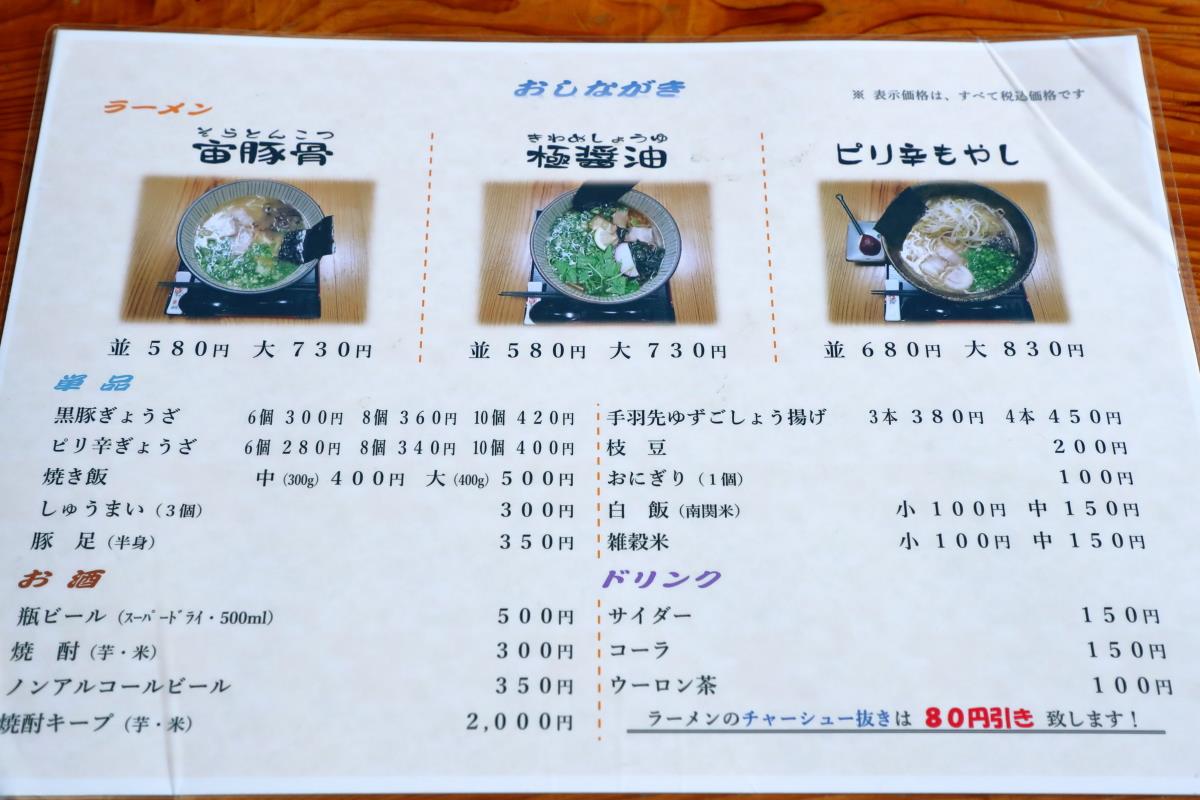 おしながき
※ 表示価格は、すべて税込価格です
ラーメン
そらとんこつ
宙豚骨
きわみしょうゆ
極醤油
ピリ辛もやし
並 580円 大 730円
並 580円 大 730円
並 680円 大 830円
単品
黒豚ぎょうざ 6個 300円 8個 360円 10個 420円
ピリ辛ぎょうざ 6個 280円 8個 340円 10個 400円
焼き飯 中(300g) 400円 大(400g) 500円
しゅうまい(3個) 300円
豚 足(半身) 350円
手羽先ゆずごしょう揚げ 3本 380円 4本 450円
枝 豆 200円
おにぎり(1個) 100円
白 飯(南関米) 小 100円 中 150円
雑穀米 小 100円 中 150円
お酒
瓶ビール(スーパードライ・500ml) 500円
焼 酎(芋・米) 300円
ノンアルコールビール 350円
焼酎キープ(芋・米) 2,000円
ドリンク
サイダー 150円
コーラ 150円
ウーロン茶 100円
ラーメンのチャーシュー抜きは 80円引き 致します!